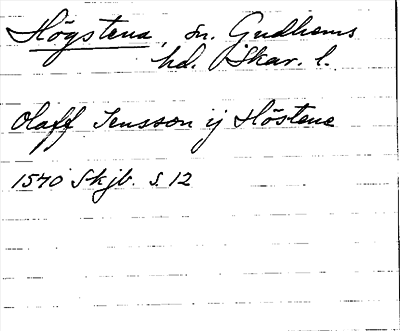 Högstena, sn. Gudhems
hd. Skar. l.
Olaff Jensson ij Höstene
1540 Skjb. S. 12